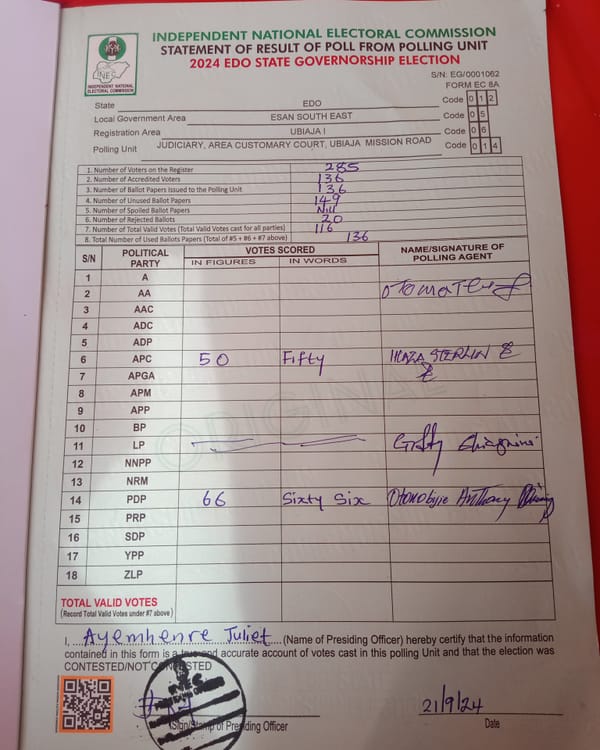 INDEPENDENT NATIONAL ELECTORAL COMMISSION
STATEMENT OF RESULT OF POLL FROM POLLING UNIT
2024 EDO STATE GOVERNORSHIP ELECTION
INEC
INDEPENDENT NATIONAL
ELECTORAL COMMISSION
S/N: EG/0001062
FORM EC 8A
State EDO Code 0 1 2
Local Government Area ESAN SOUTH EAST Code 0 5
Registration Area UBIAJA I Code 0 6
Polling Unit JUDICIARY, AREA CUSTOMARY COURT, UBIAJA MISSION ROAD Code 0 1 4
1. Number of Voters on the Register 285
2. Number of Accredited Voters 136
3. Number of Ballot Papers Issued to the Polling Unit 136
4. Number of Unused Ballot Papers 149
5. Number of Spoiled Ballot Papers Nill
6. Number of Rejected Ballots 20
7. Number of Total Valid Votes (Total Valid Votes cast for all parties) 116
8. Total Number of Used Ballots Papers (Total of #5 + #6 + #7 above) 136
S/N POLITICAL PARTY VOTES SCORED NAME/SIGNATURE OF POLLING AGENT
IN FIGURES IN WORDS
1 A
2 AA
3 AAC
4 ADC
5 ADP
6 APC 50 Fifty
7 APGA
8 APM
9 APP
10 BP
11 LP
12 NNPP
13 NRM
14 PDP 66 Sixty Six Anthony
15 PRP
16 SDP
17 YPP
18 ZLP
ORIGINAL
TOTAL VALID VOTES
(Record Total Valid Votes under #7 above)
I, Ayemhenre Juliet (Name of Presiding Officer) hereby certify that the information
contained in this form is a true and accurate account of votes cast in this polling Unit and that the election was
CONTESTED/NOT CONTESTED
21/9/24
Sign/Stamp of Presiding Officer Date